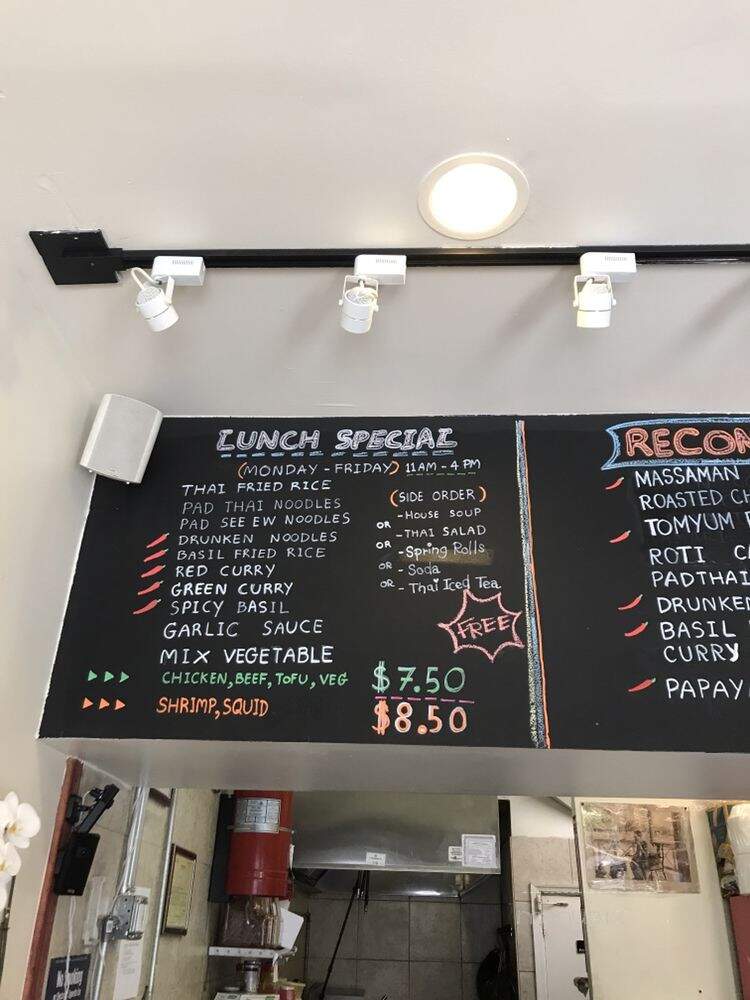 LUNCH SPECIAL
(MONDAY - FRIDAY) 11AM - 4 PM
THAI FRIED RICE
PAD THAI NOODLES
PAD SEE EW NOODLES
DRUNKEN NOODLES
BASIL FRIED RICE
RED CURRY
GREEN CURRY
SPICY BASIL
GARLIC SAUCE
MIX VEGETABLE
CHICKEN, BEEF, TOFU, VEG $7.50
SHRIMP, SQUID $8.50
(SIDE ORDER)
- HOUSE SOUP
OR - THAI SALAD
OR - Spring Rolls
OR - Soda
OR - Thai Iced Tea
FREE
RECOM
MASSAMAN
ROASTED
TOMYUM
ROTI
PADTHAI
DRUNKEN
BASIL
CURRY
PAPAY
No Smoking